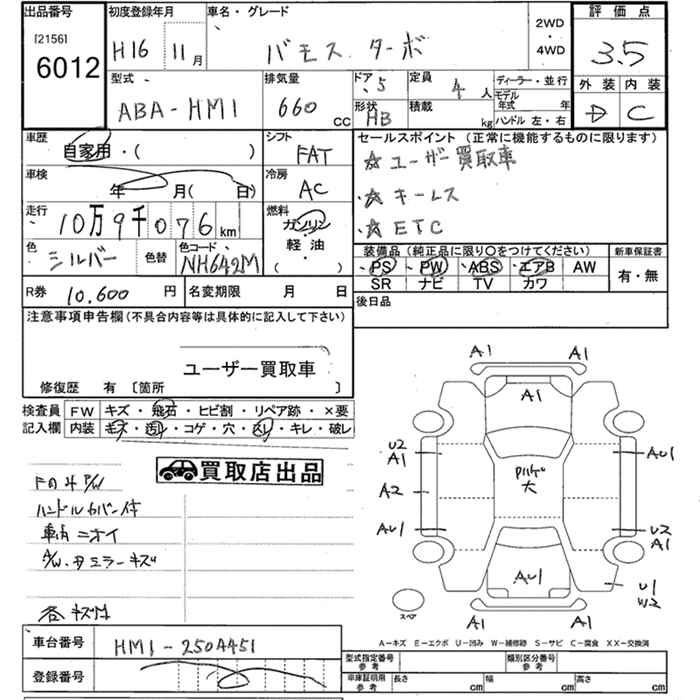 出品番号 初度登録年月 車名・グレード 2WD ・ 4WD 評価点
[2156] 6012 H16 11月 バモス ターボ 3.5
型式 排気量 ドア 定員 ディーラー・並行 外装 内装
ABA-HM1 660 CC 5 4人 モデル年式 年 D C
形状 HB 積載 kg ハンドル 左・右
車歴 シフト セールスポイント (正常に機能するものに限ります)
自家用・( ) FAT ☆ユーザー買取車
車検 冷房
年 月( 日) AC ・☆キーレス
走行 燃料
10万9千076km ガソリン ・☆ETC
色 色替 色コード 軽油・ 装備品 (純正品に限り○をつけてください) 新車保証書
シルバー NH642M ( ) ・PS ・PW ・ABS ・エアB AW 有・無
R券 10.600 円 名変期限 月 日 SR ナビ TV カワ
注意事項申告欄(不具合内容等は具体的に記入して下さい) 後日品
ユーザー買取車
修復歴 有 〔箇所 〕
検査員 FW キズ・飛石・ヒビ割・リペア跡・×要
記入欄 内装 キズ・汚れ・コゲ・穴・凹・キレ・破レ
買取店出品
ハンドルカバー付
車内ニオイ
A/W・ミラーキズ
各キズ凹
車台番号 HM1-250A451
登録番号
A1 A1
A1
U2 A1 AU1
A2 大
AU1 U2 A1
AU1 U1 W2
スペア
A1 A1
A-キズ E-エクボ U-凹み W-補修跡 S-サビ C-腐食 XX-交換済
型式指定番号 参考 類別区分番号 参考
車庫証明用 参考 長さ cm 幅 cm 高さ cm